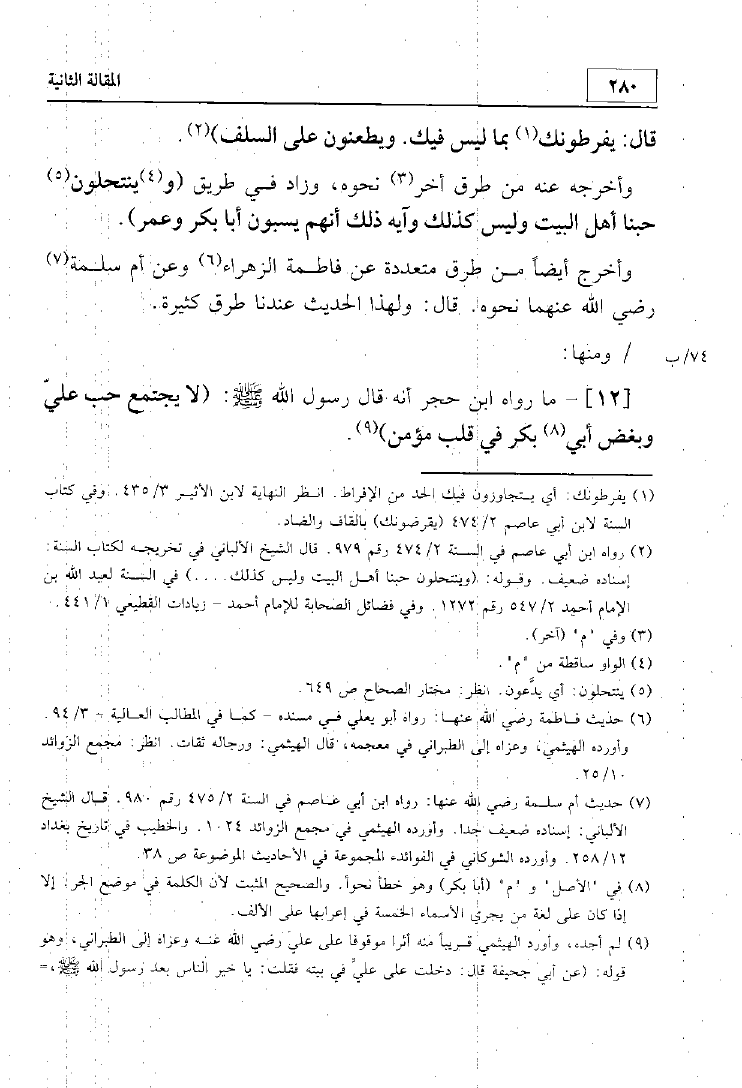 ٢٨٠
المقالة الثانية
قال: يفرطونك(١) بما ليس فيك. ويطعنون على السلف)(٢).
وأخرجه عنه من طرق أخر(٣) نحوه، وزاد في طريق (و(٤)ينتحلون(٥)
حبنا أهل البيت وليس كذلك وآيه ذلك أنهم يسبون أبا بكر وعمر).
وأخرج أيضاً من طرق متعددة عن فاطمة الزهراء(٦) وعن أم سلمة(٧)
رضي الله عنهما نحوه. قال: ولهذا الحديث عندنا طرق كثيرة.
٧٤/ب / ومنها:
[١٢] - ما رواه ابن حجر أنه قال رسول الله ﷺ: (لا يجتمع حب عليّ
وبغض أبي(٨) بكر في قلب مؤمن)(٩).
(١) يفرطونك: أي يتجاوزون فيك الحد من الإفراط. انظر النهاية لابن الأثير ٤٣٥/٣. وفي كتاب
السنة لابن أبي عاصم ٤٧٤/٢ (يقرضونك) بالقاف والضاد.
(٢) رواه ابن أبي عاصم في السنة ٤٧٤/٢ رقم ٩٧٩. قال الشيخ الألباني في تخريجه لكتاب السنة:
إسناده ضعيف. وقوله: (وينتحلون حبنا أهل البيت وليس كذلك ....) في السنة لعبد الله بن
الإمام أحمد ٥٤٧/٢ رقم ١٢٧٢. وفي فضائل الصحابة للإمام أحمد - زيادات القطيعي ٤٤١/١.
(٣) وفي "م" (آخر).
(٤) الواو ساقطة من "م".
(٥) ينتحلون: أي يدَّعون. انظر: مختار الصحاح ص ٦٤٩.
(٦) حديث فاطمة رضي الله عنها: رواه أبو يعلي في مسنده - كما في المطالب العالية - ٩٤/٣.
وأورده الهيثمي، وعزاه إلى الطبراني في معجمه، قال الهيثمي: ورجاله ثقات. انظر: مجمع الزوائد
٢٥/١٠.
(٧) حديث أم سلمة رضي الله عنها: رواه ابن أبي عاصم في السنة ٤٧٥/٢ رقم ٩٨٠. قال الشيخ
الألباني: إسناده ضعيف جدا. وأورده الهيثمي في مجمع الزوائد ١٠٢٤. والخطيب في تاريخ بغداد
٢٥٨/١٢. وأورده الشوكاني في الفوائدء المجموعة في الأحاديث الموضوعة ص ٣٨.
(٨) في "الأصل" و "م" (أبا بكر) وهو خطأ نحواً. والصحيح المثبت لأن الكلمة في موضع الجر: إلا
إذا كان على لغة من يجري الأسماء الخمسة في إعرابها على الألف.
(٩) لم أجده، وأورد الهيثمي قريباً منه أثرا موقوفا على علي رضي الله عنه وعزاه إلى الطبراني، وهو
قوله: (عن أبي جحيفة قال: دخلت على عليٍّ في بيته فقلت: يا خير الناس بعد رسول الله ﷺ، =